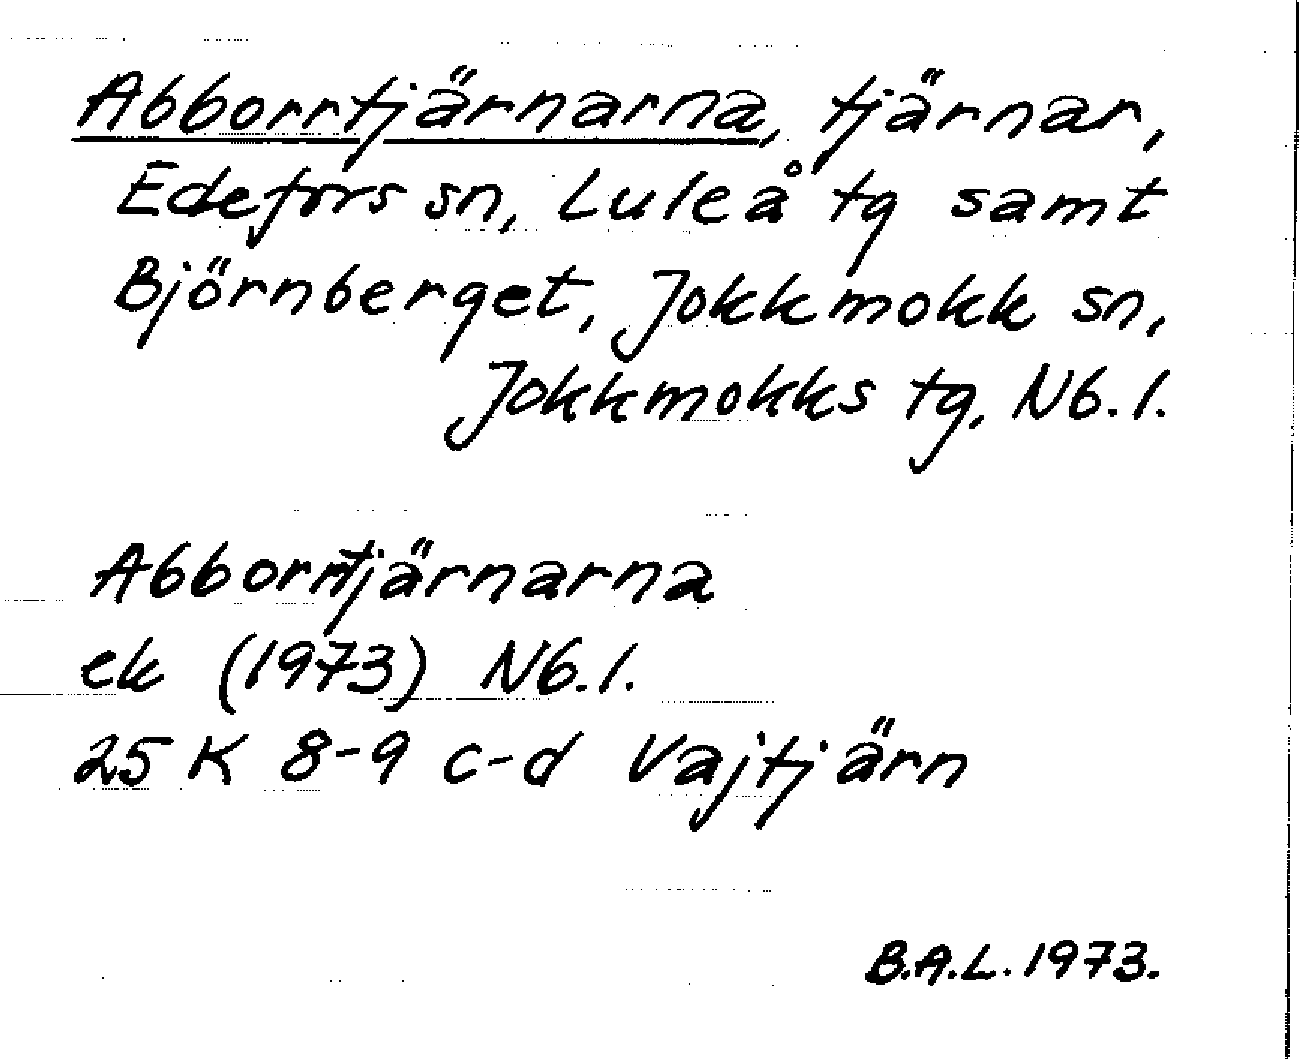 Abborrtjärnarna, tjärnar,
Edefors sn, Luleå tg samt
Björnberget, Jokkmokk sn,
Jokkmokks tg, Nb. l.
Abborrtjärnarna
ek (1973) Nb. l.
25 K 8-9 c-d Vajtjärn
B.A.L. 1973.